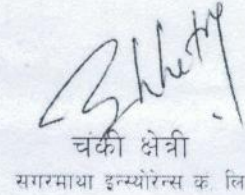 चंकी क्षेत्री
सगरमाथा इन्स्योरेन्स क. लि